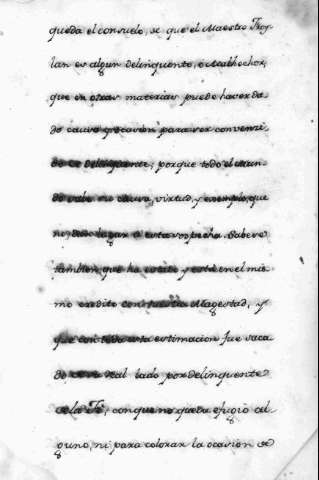 queda el consuelo, se que el Maestro Froy-
lan es algun delinquente, o Malhechor,
que en otras materias puede haver da-
do causa y ocasion para ser convenci-
do de delinquente; porque todo el Mun-
do sabe su causa, virtud, y exemplo, que
ni dado lugar a esta sospecha. Sabese
tambien, que ha estado y está en el mis-
mo credito con Magestad, y
que con toda esta estimacion fue saca-
do de su Real lado por delinquente
de la Fé, con que no queda efugio al-
guno, ni para colorar la ocasion de